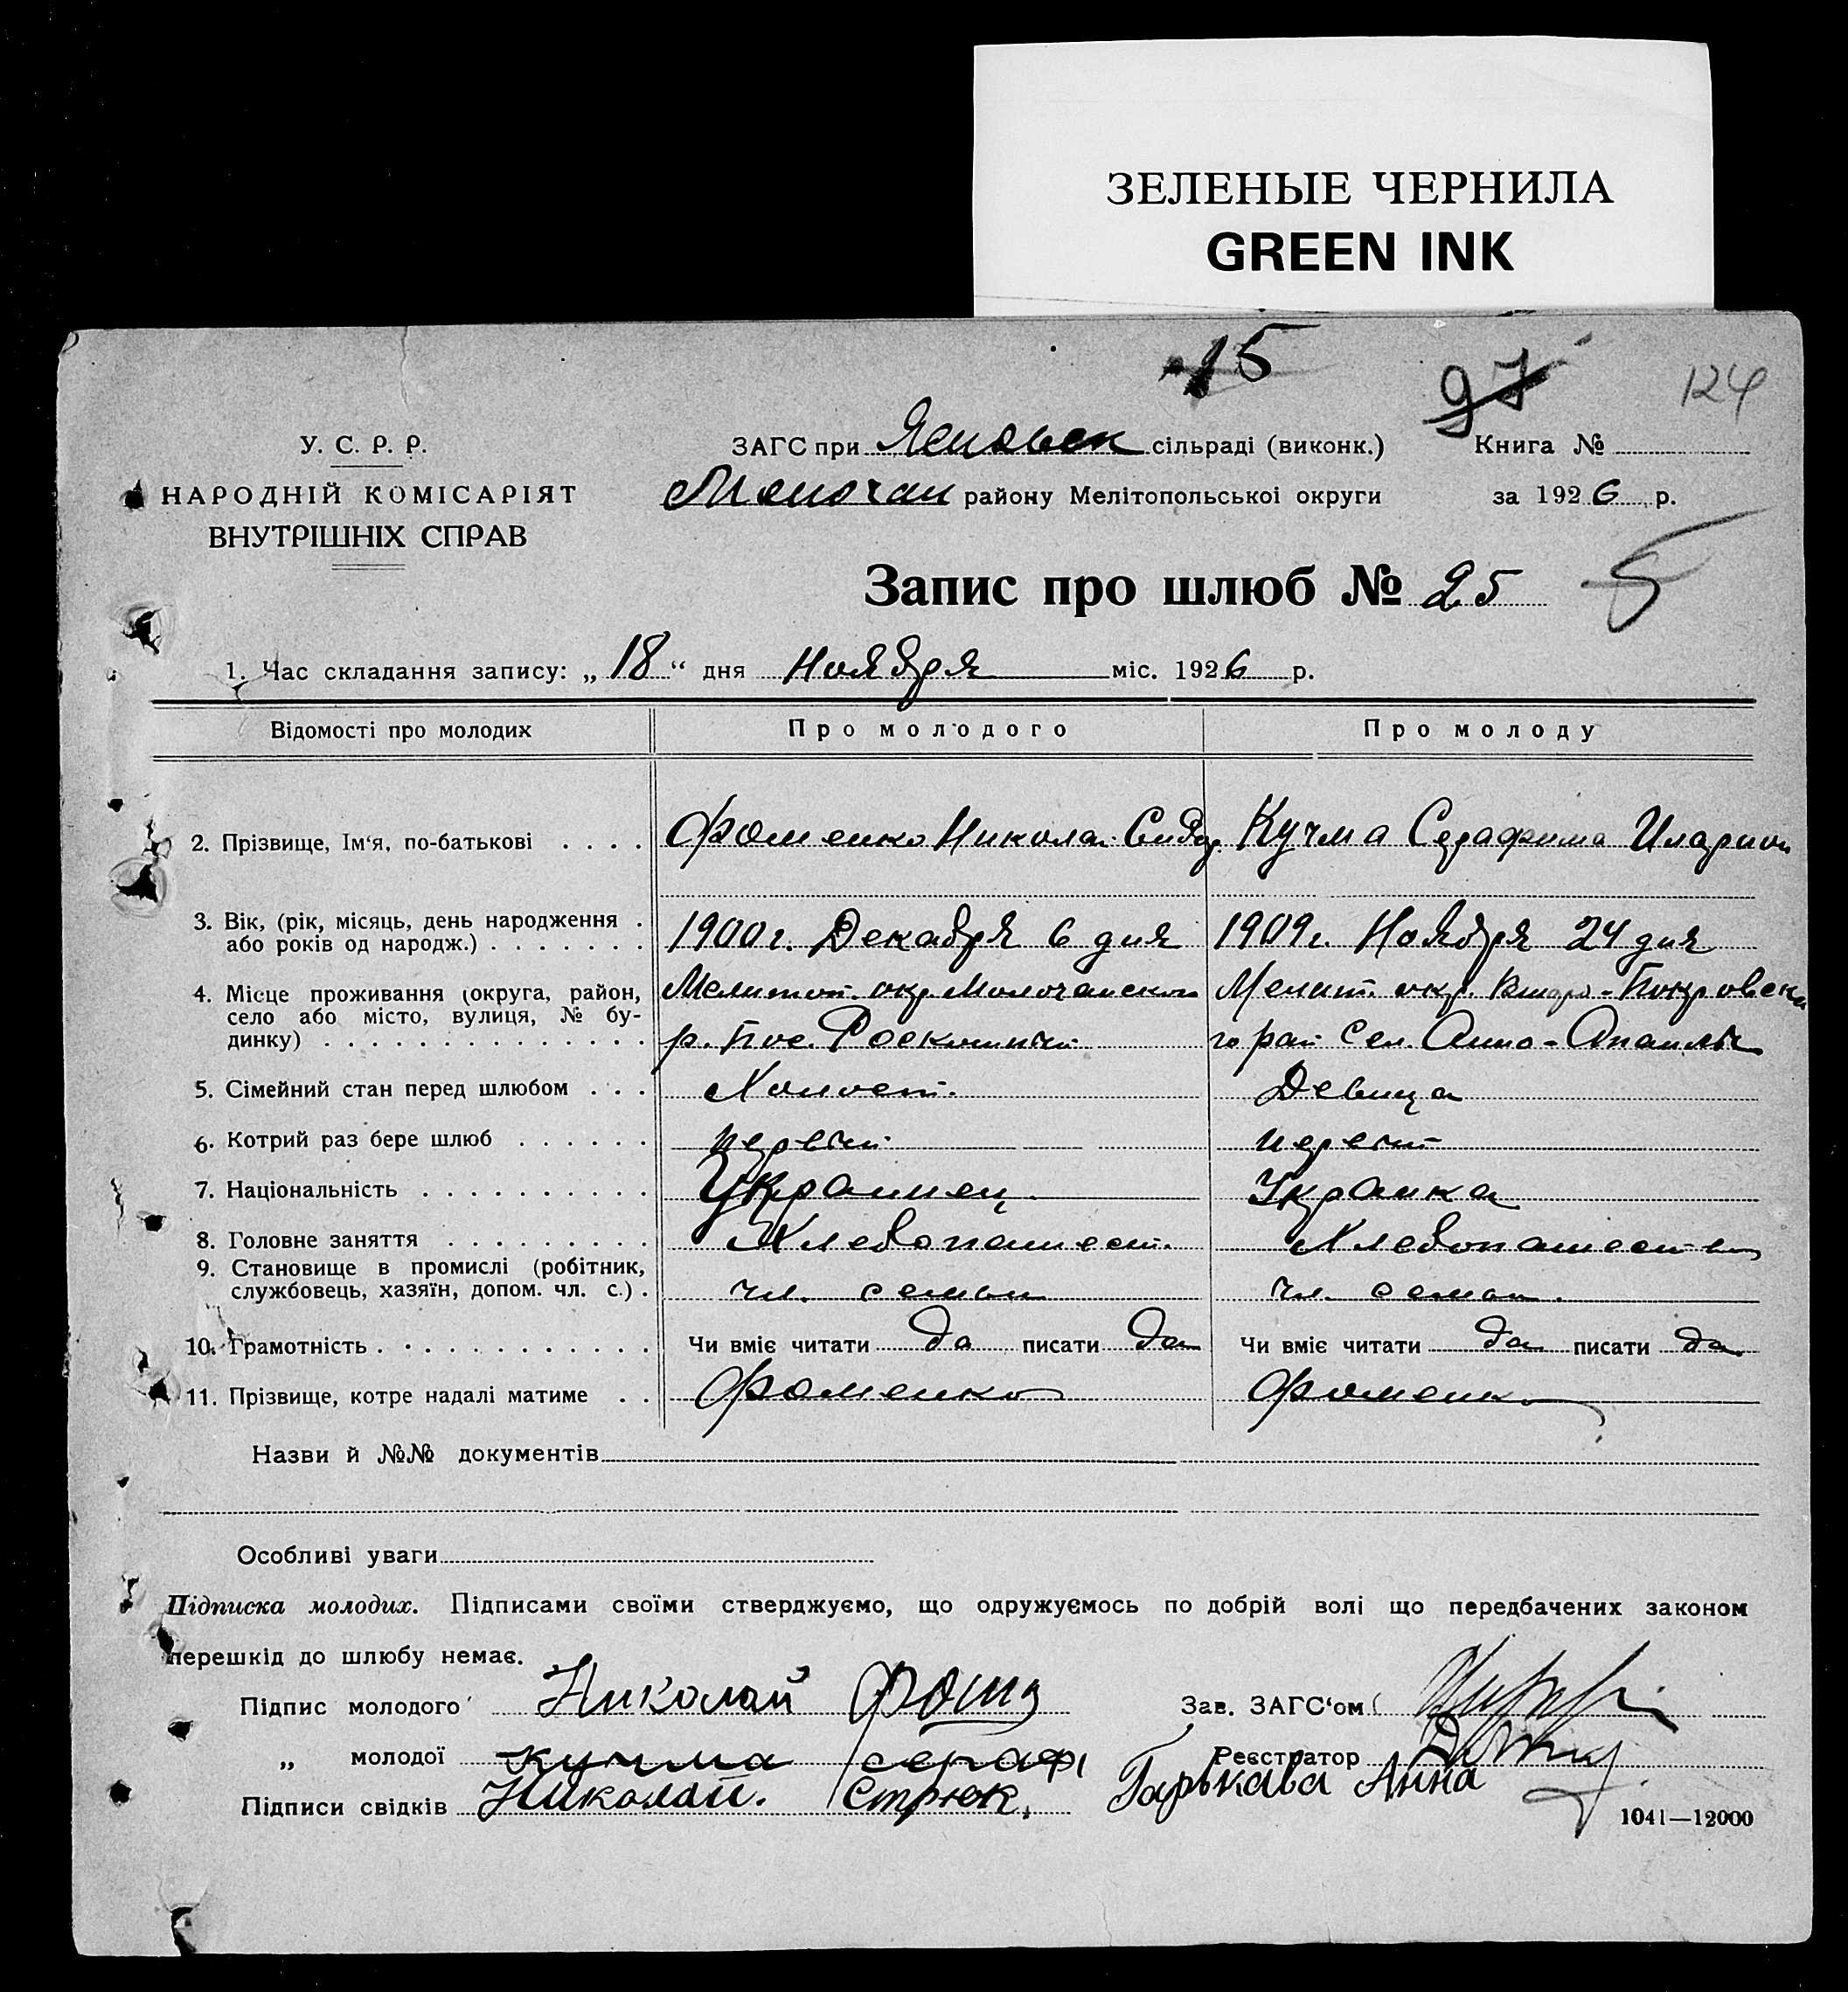 ЗЕЛЕНЫЕ ЧЕРНИЛА
GREEN INK
15
97
124
У. С. Р. Р.
НАРОДНІЙ КОМІСАРІЯТ
ВНУТРІШНІХ СПРАВ
ЗАГС при сільраді (виконк.)
Книга №
Молочан району Мелітопольської округи
за 1926 р.
Запис про шлюб № 25
5
1. Час складання запису: „18“ дня Ноября міс. 1926 р.
Відомості про молодих
Про молодого
Про молоду
2. Прізвище, Ім‘я, по-батькові . . . .
Фоменко Николай Сидор.
Кучма Серафима Иларион
3. Вік, (рік, місяць, день народження .
або років од народж.) . . . . . . .
1900 г. Декабря 6 дня
1909 г. Ноября 24 дня
4. Місце проживання (округа, район,
село або місто, вулиця, № бу-
динку) . . . . . . . . . . . . . .
Мелитоп. окр. Молочанского
р. Пос. Роскошный
Мелит. окр. -Покровска
го рай Сел. Анно-
5. Сімейний стан перед шлюбом . . .
Холост.
Девица
6. Котрий раз бере шлюб . . . . . .
первый
первый
7. Національність . . . . . . . . . .
Украинец
Украинка
8. Головне заняття . . . . . . . . .
Хлебопашест.
Хлебопашество
9. Становище в промислі (робітник,
службовець, хазяїн, допом. чл. с.) .
чл. семьи
чл. семьи.
10. Грамотність . . . . . . . . . . . .
Чи вміє читати да писати да
Чи вміє читати да писати да
11. Прізвище, котре надалі матиме . .
Фоменко
Фоменко
Назви й №№ документів
Особливі уваги
Підписка молодих. Підписами своїми стверджуємо, що одружуємось по добрій волі що передбачених законом
перешкід до шлюбу немає.
Підпис молодого Николай
Зав. ЗАГС‘ом
„ молодої кучма сераф
Реєстратор
Підписи свідків Николай. Стрюк.
Гарькава Анна
1041—12000